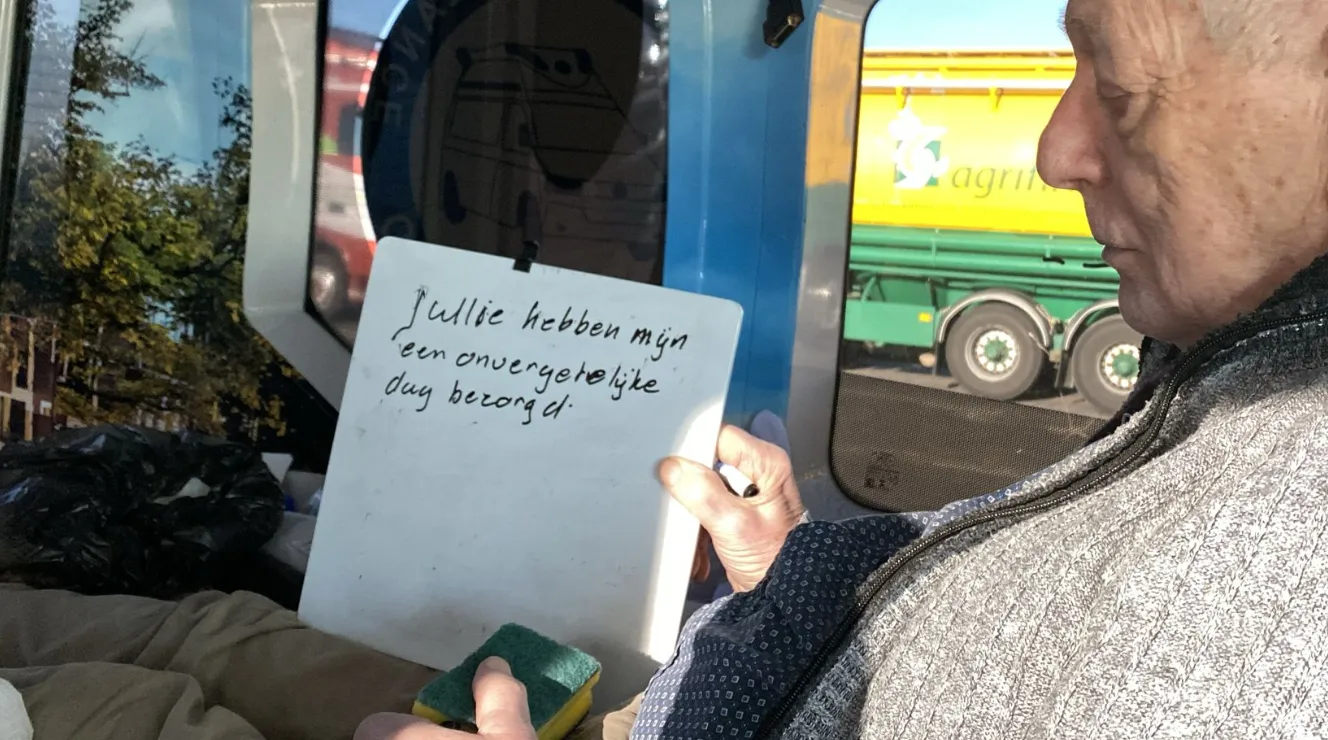 Jullie hebben mijn
een onvergetelijke
dag bezorgd.
agrifi